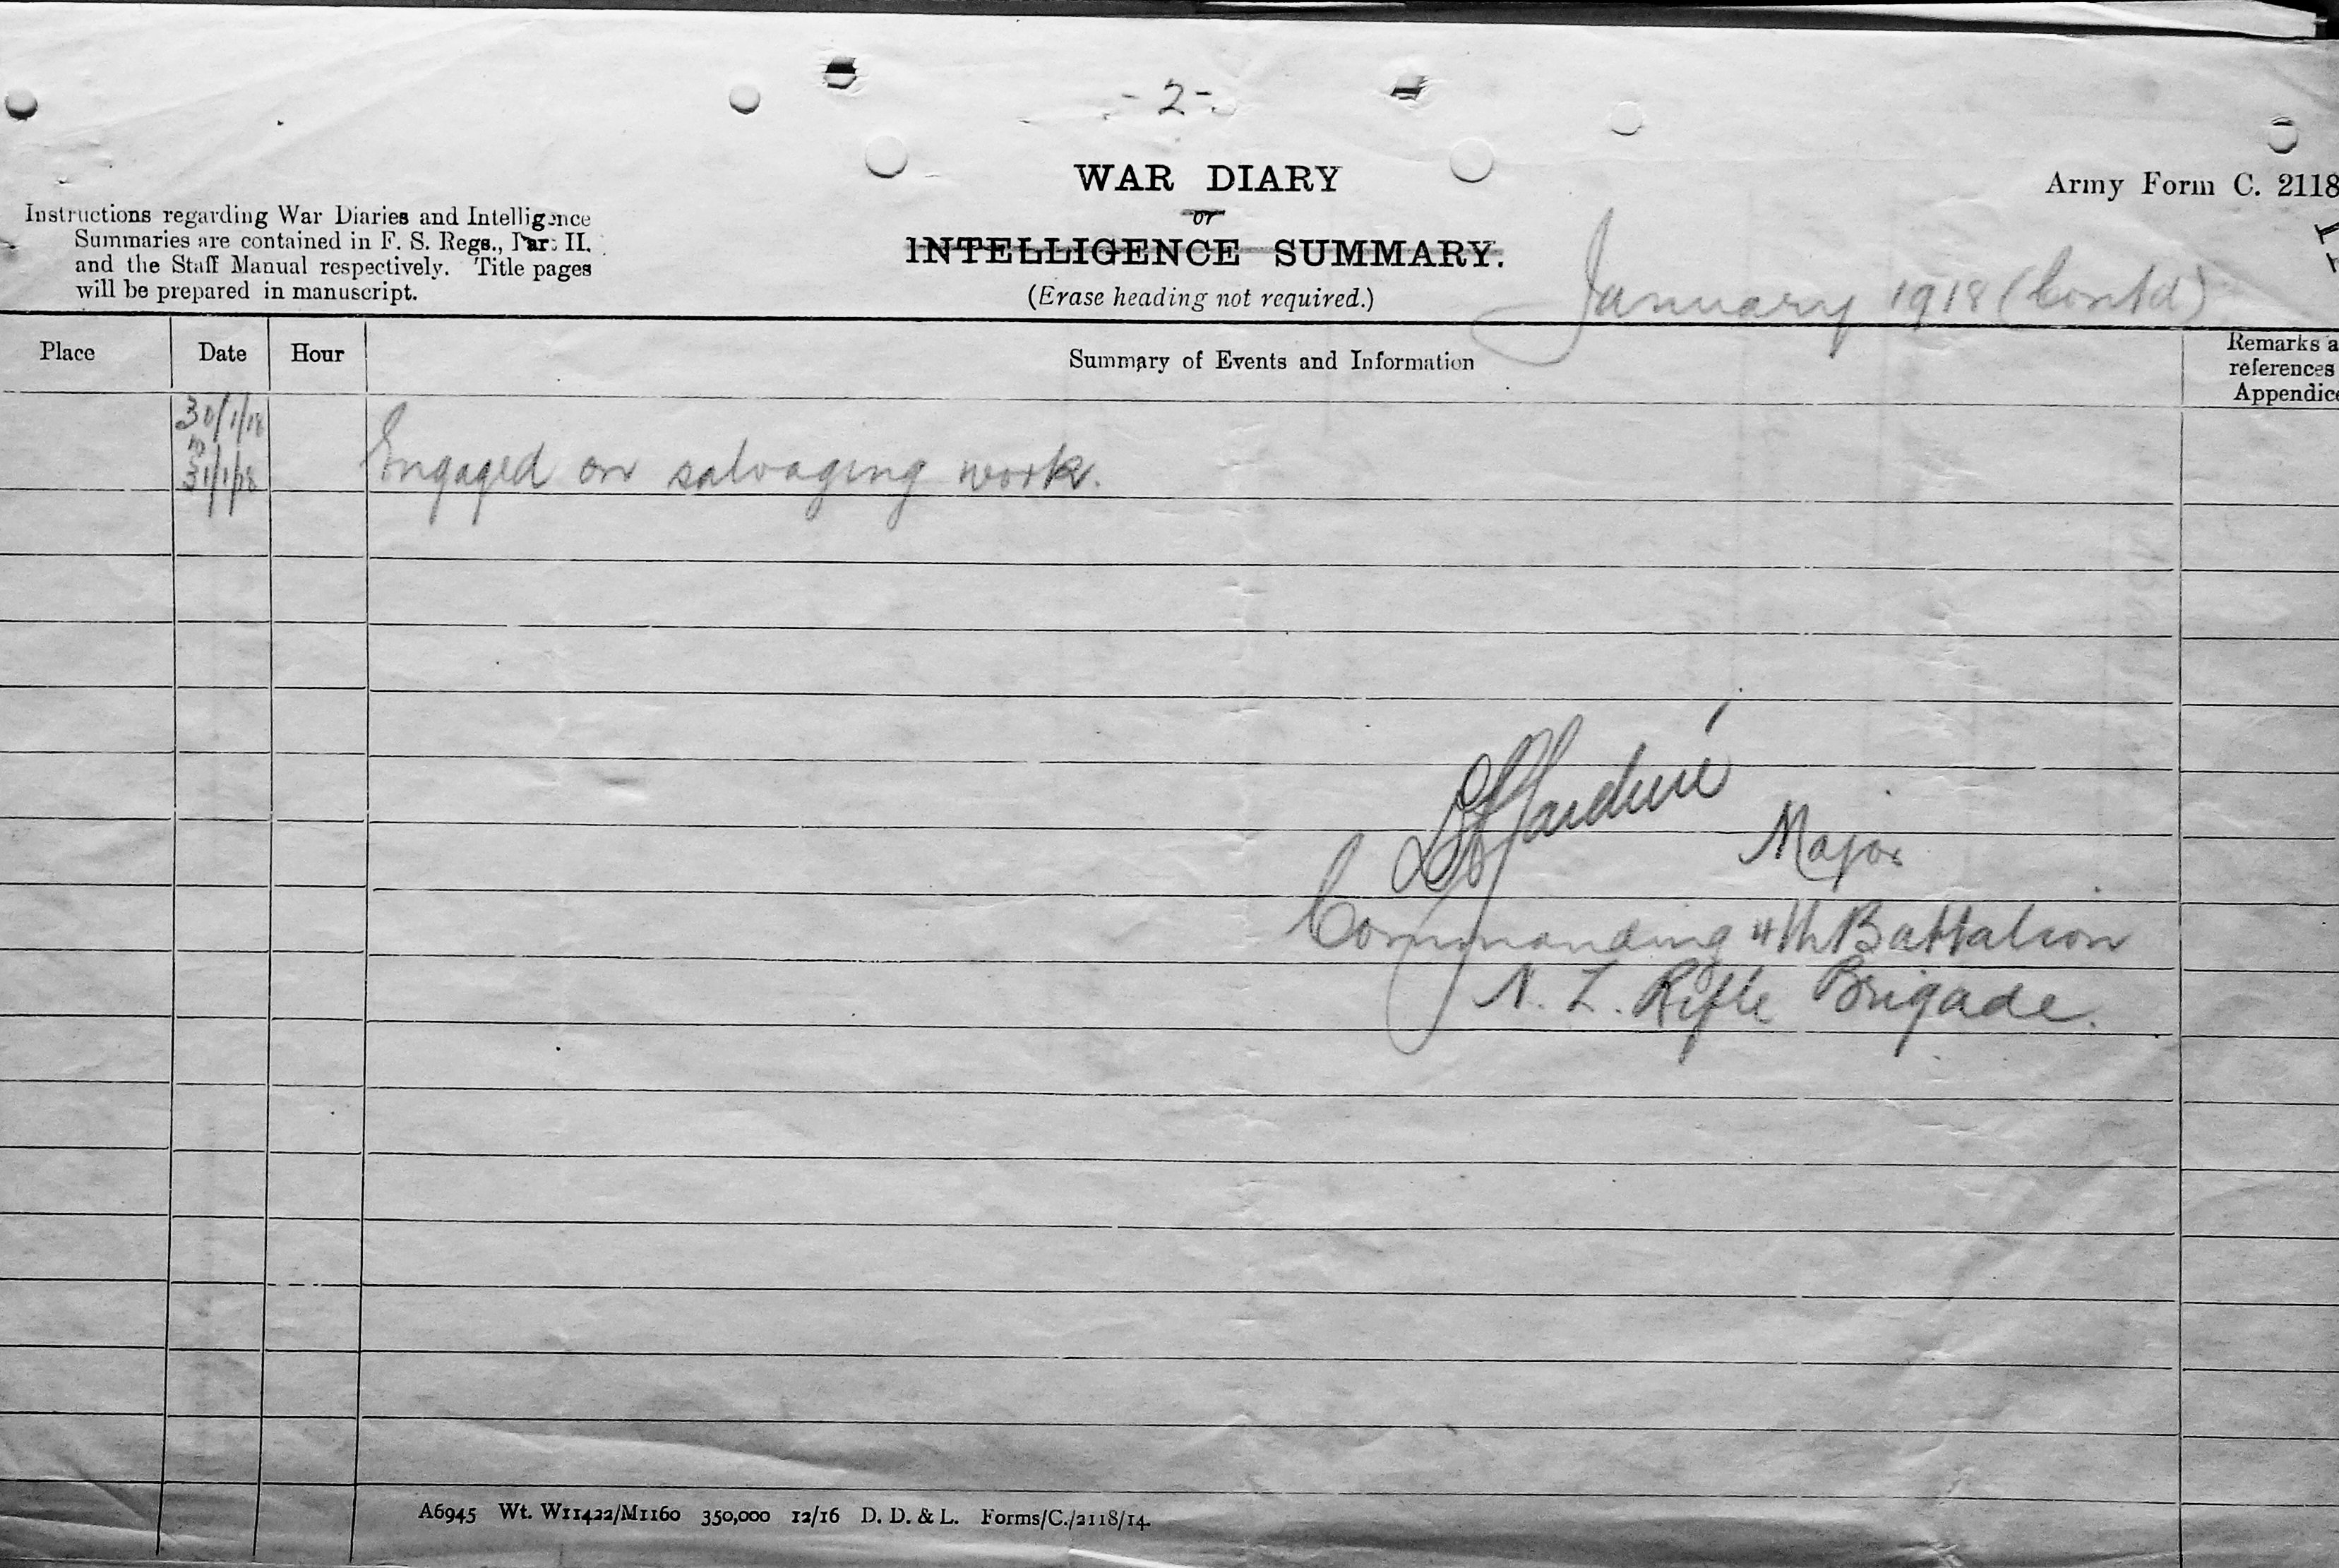 - 2 -
WAR DIARY
or
INTELLIGENCE SUMMARY.
(Erase heading not required.)
Army Form C. 2118
Instructions regarding War Diaries and Intelligence
Summaries are contained in F. S. Regs., Part II.
and the Staff Manual respectively. Title pages
will be prepared in manuscript.
January 1918 (Contd)
Place Date Hour Summary of Events and Information Remarks a
references
Appendice
30/1/18
to
31/1/18 Engaged on salvaging work.
Major
Commanding 4th Battalion
N. Z. Rifle Brigade.
A6945 Wt. W11422/M1160 350,000 12/16 D. D. & L. Forms/C./2118/14.